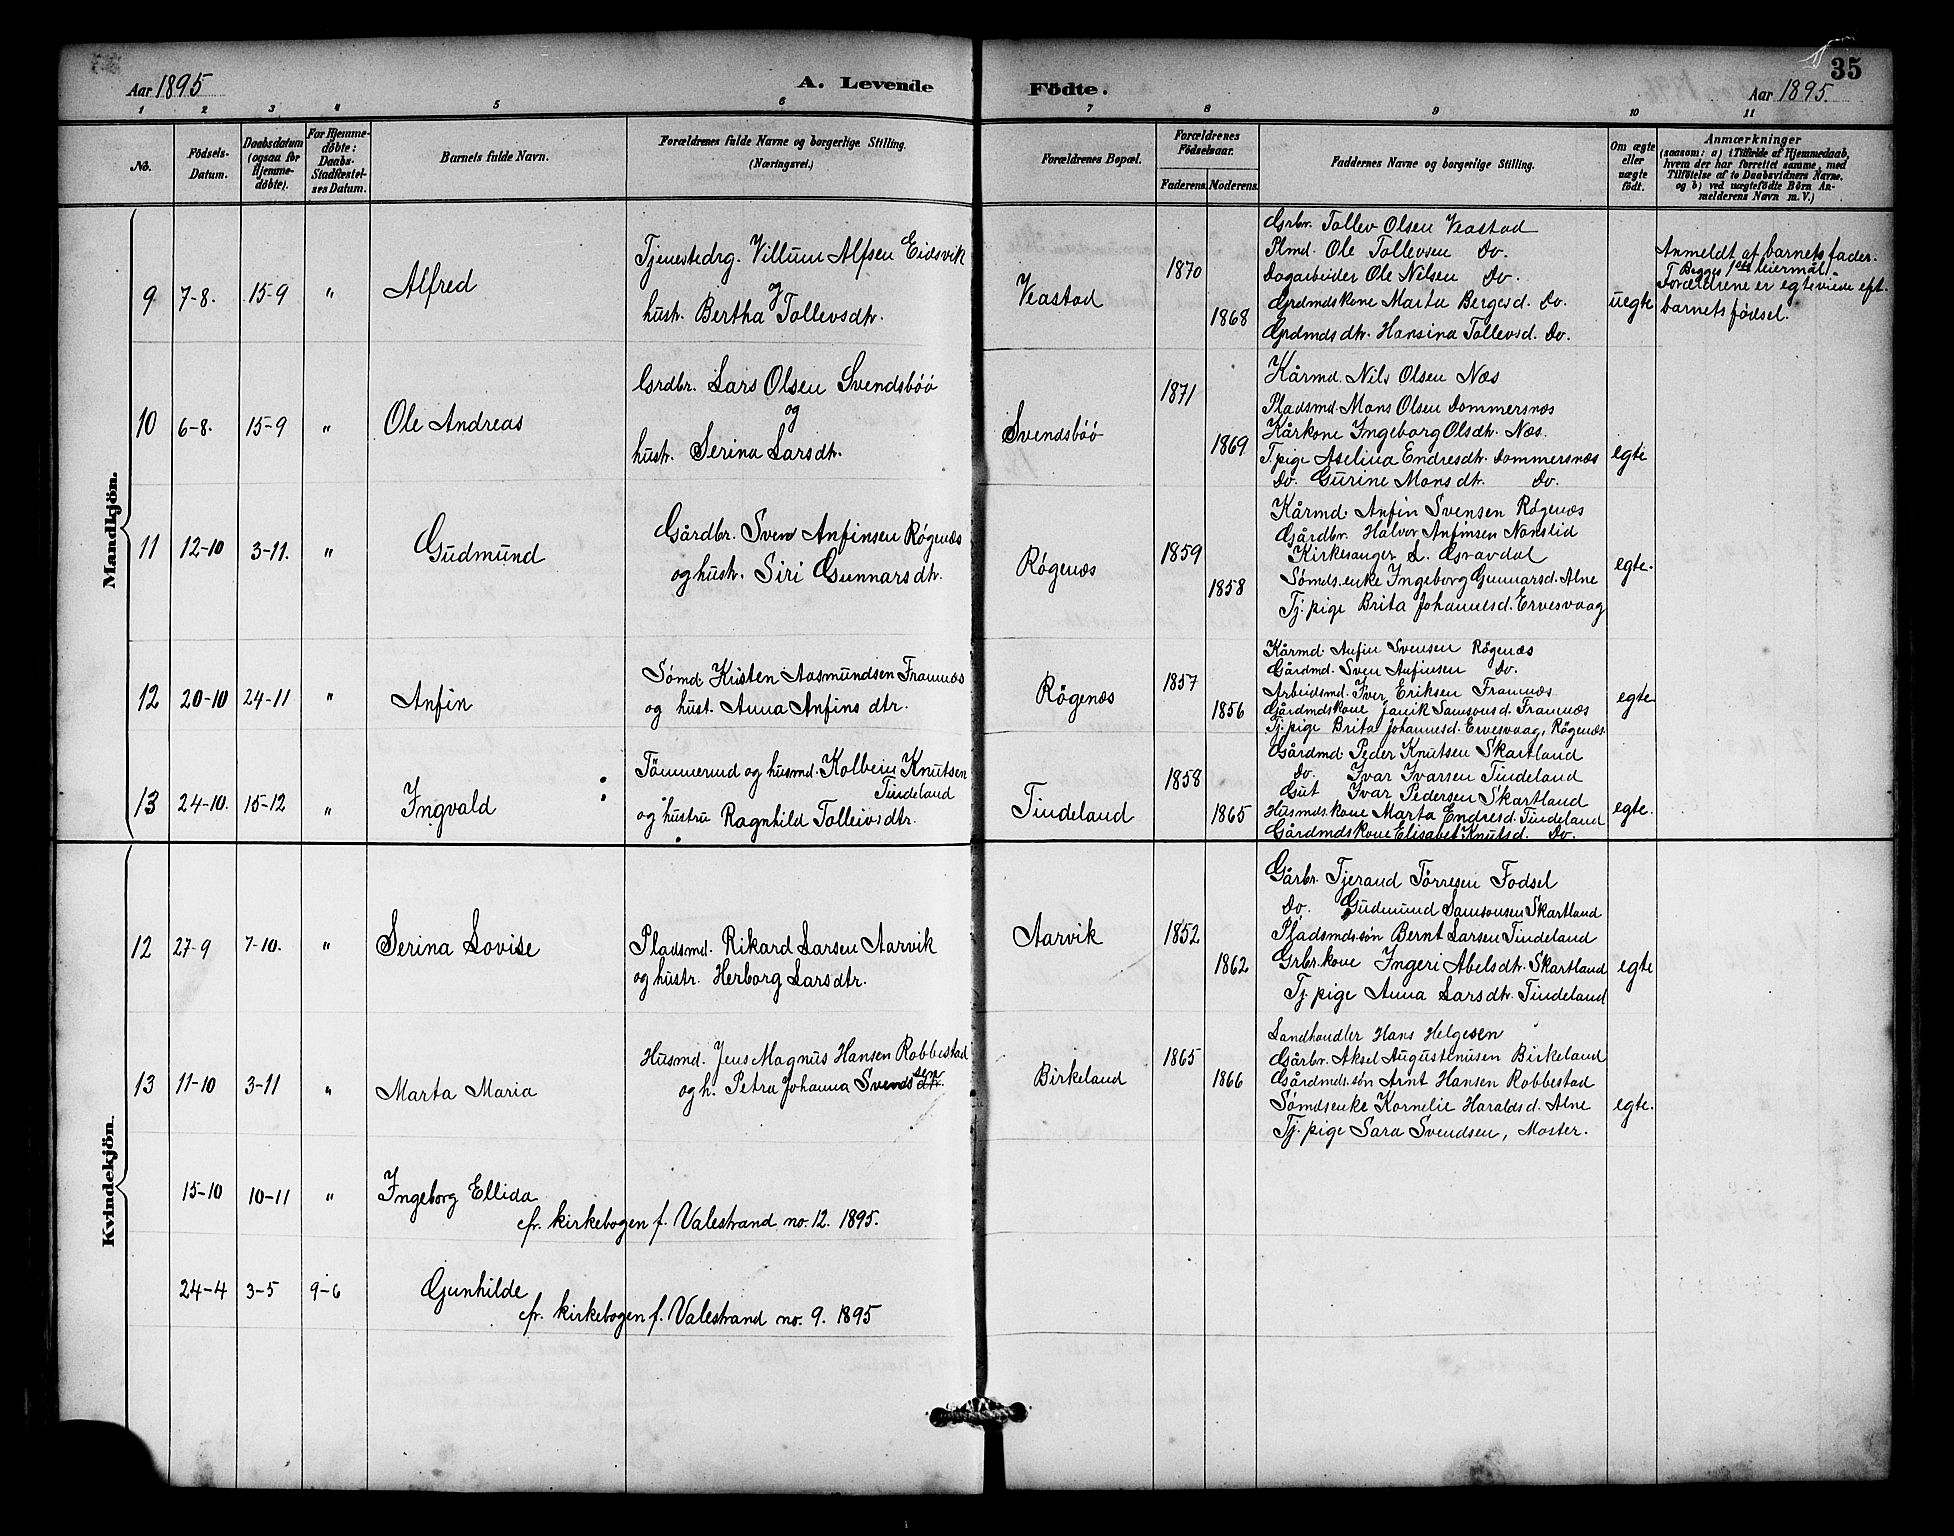 Aar 1895
A. Levende
Födte.
Aar 1895.
35
1 2 3 4 5 6 7 8 9 10 11
No.
Födsels-
Datum.
Daabsdatum
(ogsaa for
Hjemme-
døbte).
For Hjemme-
døbte:
Daabs-
Stadfæstel-
ses Datum.
Barnets fulde Navn.
Forældrenes fulde Navne og borgerlige Stilling.
(Næringsvei.)
Forældrenes Bopæl.
Forældrenes
Födselsaar.
Faderens. Moderens.
Faddernes Navne og borgerlige Stilling.
Om ægte
eller
uægte
födt.
Anmærkninger
(saasom: a) i Tilfælde af Hjemmedaab,
hvem der har forrettet samme, med
Tilföielse af to Daabsvidners Navne.
og b) ved uægtefödte Börn An-
melderens Navn m. V.)
Mandkjön.
9 7-8. 15-9 " Alfred
Tjenestedrg. Villum Alfsen Eidsvik
og
hustr. Bertha Tollevsdtr.
Veastad
1870
1868
Grbr. Tollev Olsen Veastad
Plmd. Ole Tollevsen Do.
Dagarbeider Ole Nilsen Do.
Grdmdskone Marta Bergesd. Do.
Grdmdsdtr. Hansina Tollevsd. Do.
uegte
Anmeldt af barnets fader.
Begges 1ste leiermål.
Forældrene er egteviede eft.
barnets fødsel.
10 6-8. 15-9 " Ole Andreas
Grdbr. Lars Olsen Svendsböö
og
hustr. Serina Larsdtr.
Svendsböö
1871
1869
Kårmd. Nils Olsen Næs
Pladsmd. Mons Olsen Dommersnæs
Kårkone Ingeborg Olsdtr. Næs.
T. pige Aselina Endresdtr. Dommersnæs
Do. Gurine Monsdtr. Do.
egte
11 12-10 3-11. " Gudmund
Gårdbr. Sven Anfinsen Røgenæs
og hustr. Siri Gunnarsdtr.
Røgenæs
1859
1858
Kårmd. Anfin Svensen Røgenæs
Gårdbr. Halvor Anfinsen Nonslid
Kirkesanger L. Gravdal
Sømds.enke Ingeborg Gunnarsd. Alne
Tj. pige Brita Johannesd. Ervesvaag
egte.
12 20-10 24-11 " Anfin
Sømd. Kristen Aasmundsen Framnæs
og hust. Anna Anfinsdtr.
Røgenæs
1857
1856
Kårmd. Anfin Svensen Røgenæs
Gårdmd. Sven Anfinsen Do.
Arbeidsmd. Iver Eriksen Framnæs
Gårdmdskone Janik Samsonsd. Framnæs
Tj. pige Brita Johannesd. Ervesvaag, Røgenæs.
egte
13 24-10. 15-12 " Ingvald
Tömmermd og husmd. Kolbein Knutsen
Tindeland
og hustru Ragnhild Tolleivsdtr.
Tindeland
1858
1865
Gårdmd. Peder Knutsen Skartland
Do. Ivar Ivarsen Tindeland
Gut Ivar Pedersen Skartland
Husmdskone Marta Endresd. Tindeland
Gårdmdskone Elisabet Knutsd. Do.
egte.
Kvindekjön.
12 27-9 7-10. " Serina Lovise
Pladsmd. Rikard Larsen Aarvik
og hustr. Herborg Larsdtr.
Aarvik
1852
1862
Gårbr. Tjerand Törresen Fodsel
Do. Gudmund Samsonsen Skartland
Pladsmds.søn Bernt Larsen Tindeland
Grbr.kone Ingeri Abelsdtr. Skartland
Tj. pige Anna Larsdtr. Tindeland
egte
13 11-10 3-11 " Marta Maria
Husmd. Jens Magnus Hansen Robbestad
og h. Petra Johanna Svendsen
Birkeland
1865
1866
Landhandler Hans Helgesen
Gårbr. Aksel Augustinusen Birkeland
Gårdmds.søn Arnt Hansen Robbestad
Sømdsenke Kornelie Haraldsd. Alne
Tj. pige Sara Svendsen, Moster.
egte.
15-10 10-11 " Ingeborg Ellida
cfr. kirkebogen f. Valestrand no. 12. 1895.
24-4 3-5 9-6 Gunhilde
cfr. kirkebogen f. Valestrand no. 9. 1895